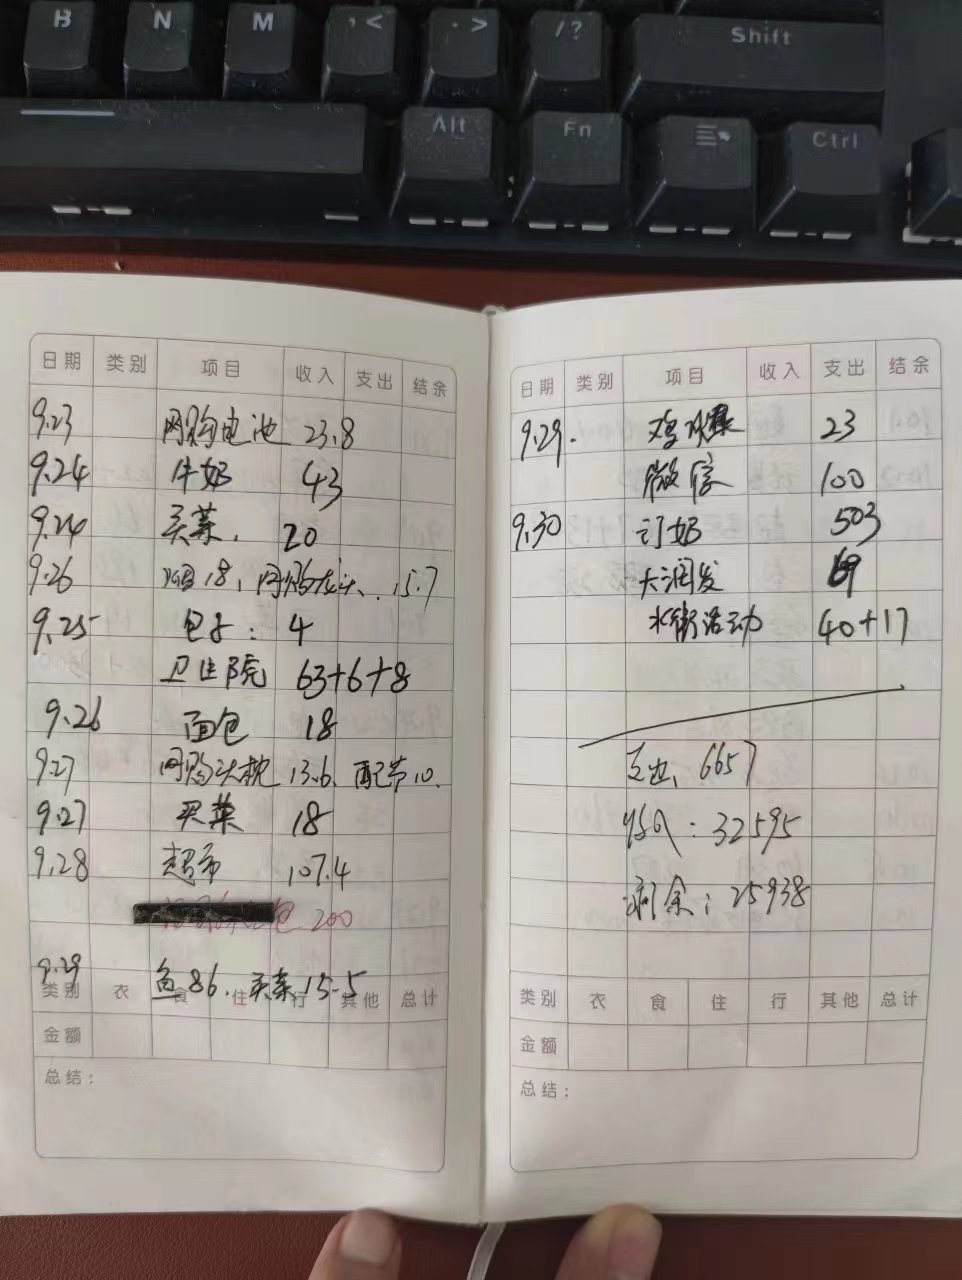 B N M , < . > / ? Shift
Alt Fn Ctrl
日期 类别 项目 收入 支出 结余
9.23 网购电池 23.8
9.24 牛奶 43
9.24 买菜. 20
9.26 18, 网购龙头. 15.7
9.25 包子: 4
卫生院 63+6+8
9.26 面包 18
9.27 网购头枕 13.6. 配节 10.
9.27 买菜 18
9.28 超市 107.4
包 200
9.29 鱼 86. 买菜 15.5
类别 衣 食 住 行 其他 总计
金额
总结:
日期 类别 项目 收入 支出 结余
9.29. 鸡 23
微信 100
9.30 订奶 503
大润发 69
水街活动 40+17
支出: 6657
收入: 32595
剩余: 25938
类别 衣 食 住 行 其他 总计
金额
总结: